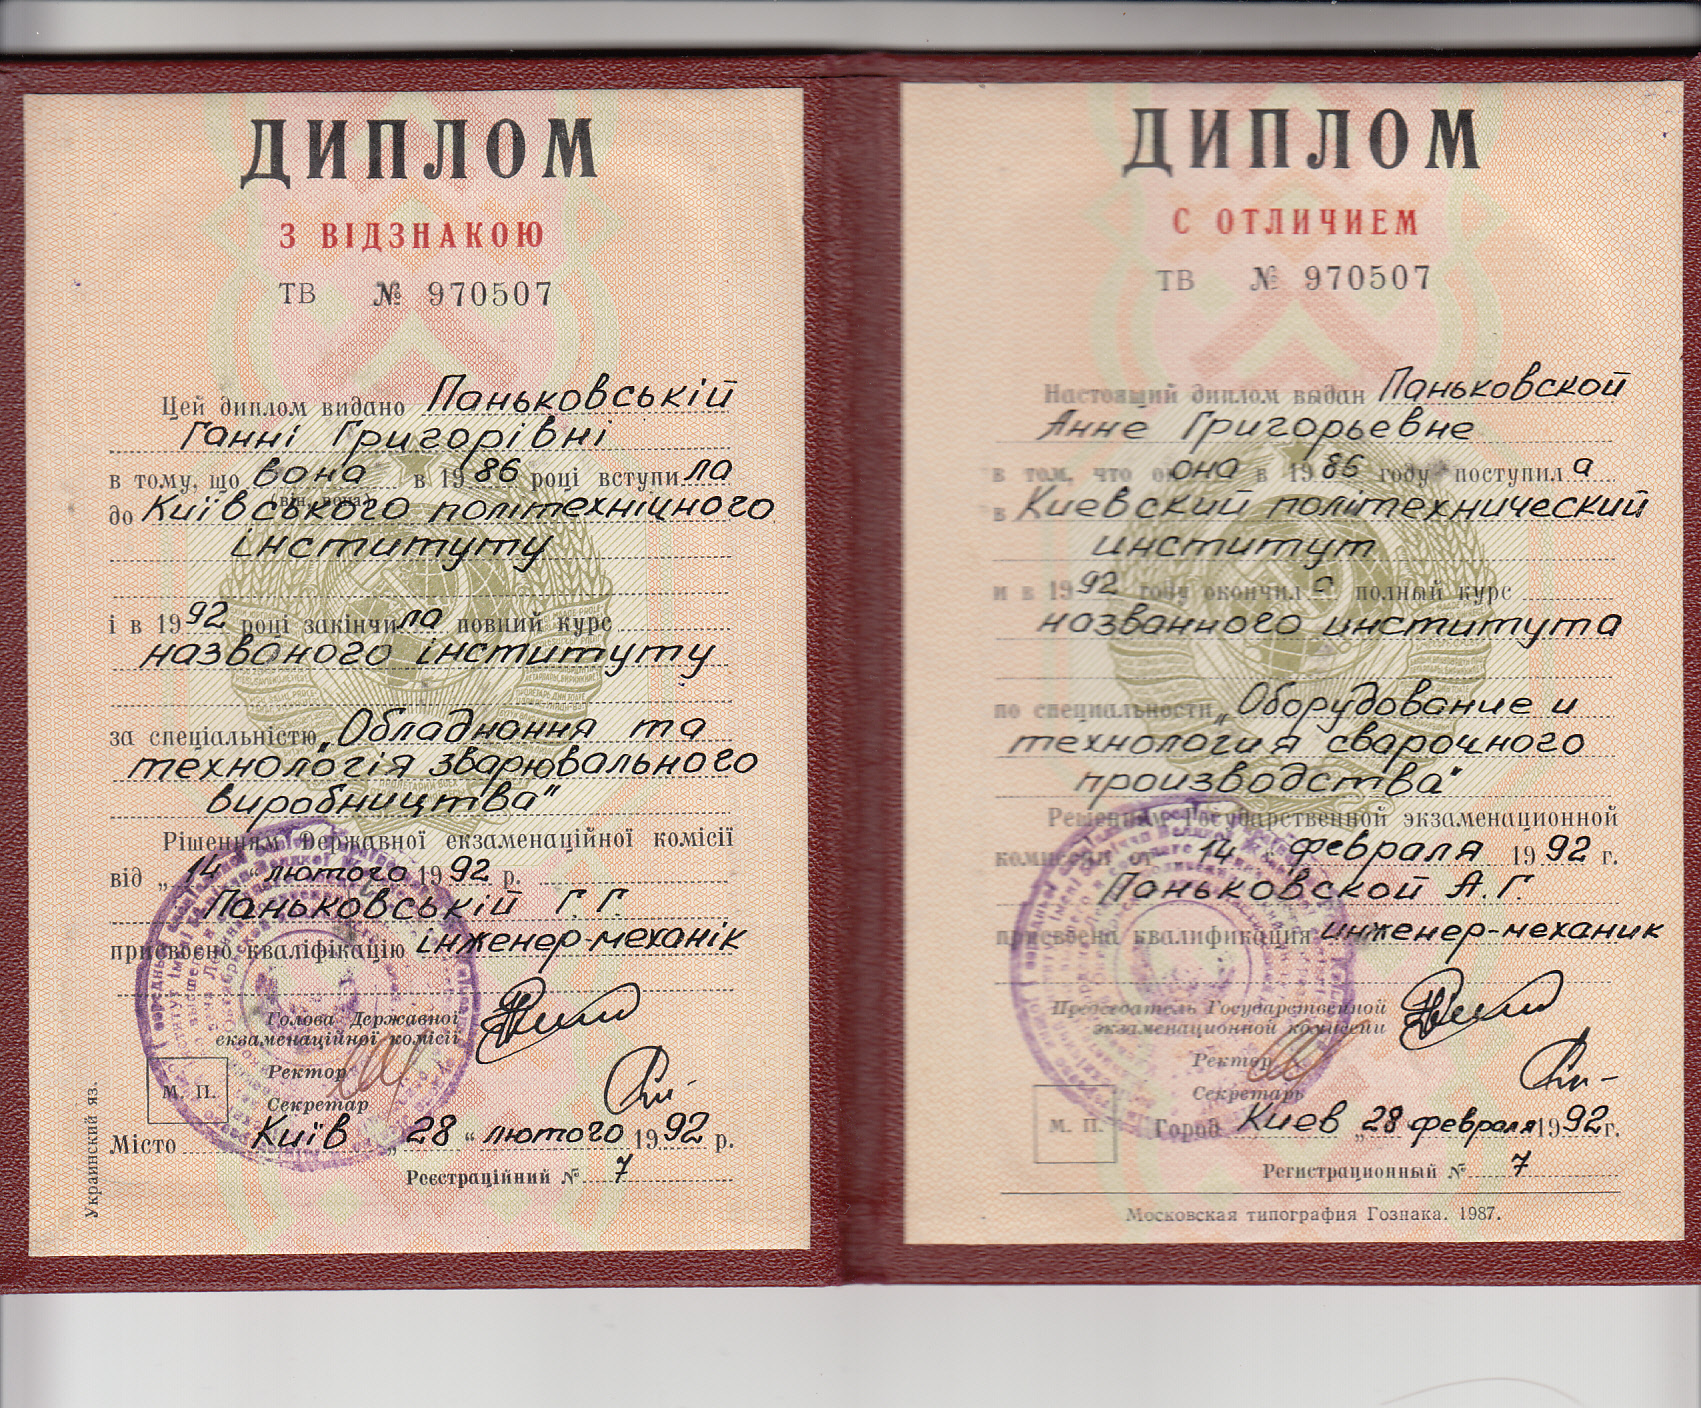 ДИПЛОМ
З ВІДЗНАКОЮ
ТВ № 970507
Цей диплом видано Паньковській
Ганні Григорівні
в тому, що вона в 1986 році вступила
(він, вона)
до Київського політехніцного
інституту
і в 1992 році закінчила повний курс
названого інституту
за спеціальністю „Обладнання та
технологія зварювального
виробництва"
Рішенням Державної екзаменаційної комісії
від „14" лютого 1992 р.
Паньковській Г. Г.
присвоєно кваліфікацію інженер-механік
Голова Державної
екзаменаційної комісії
Ректор
Секретар
М. П.
Місто Київ „28" лютого 1992 р.
Реєстраційний № 7
Украинский яз.
ДИПЛОМ
С ОТЛИЧИЕМ
ТВ № 970507
Настоящий диплом выдан Паньковской
Анне Григорьевне
в том, что она в 1986 году поступила
в Киевский политехнический
институт
и в 1992 году окончил с полный курс
названного института
по специальности „Оборудование и
технология сварочного
производства"
Решением Государственной экзаменационной
комиссии от 14 февраля 1992 г.
Паньковской А.Г.
присвоена квалификация инженер-механик
Председатель Государственной
экзаменационной комиссии
Ректор
Секретарь
М. П.
Город Киев „28 февраля 1992г.
Регистрационный № 7
Московская типография Гознака. 1987.